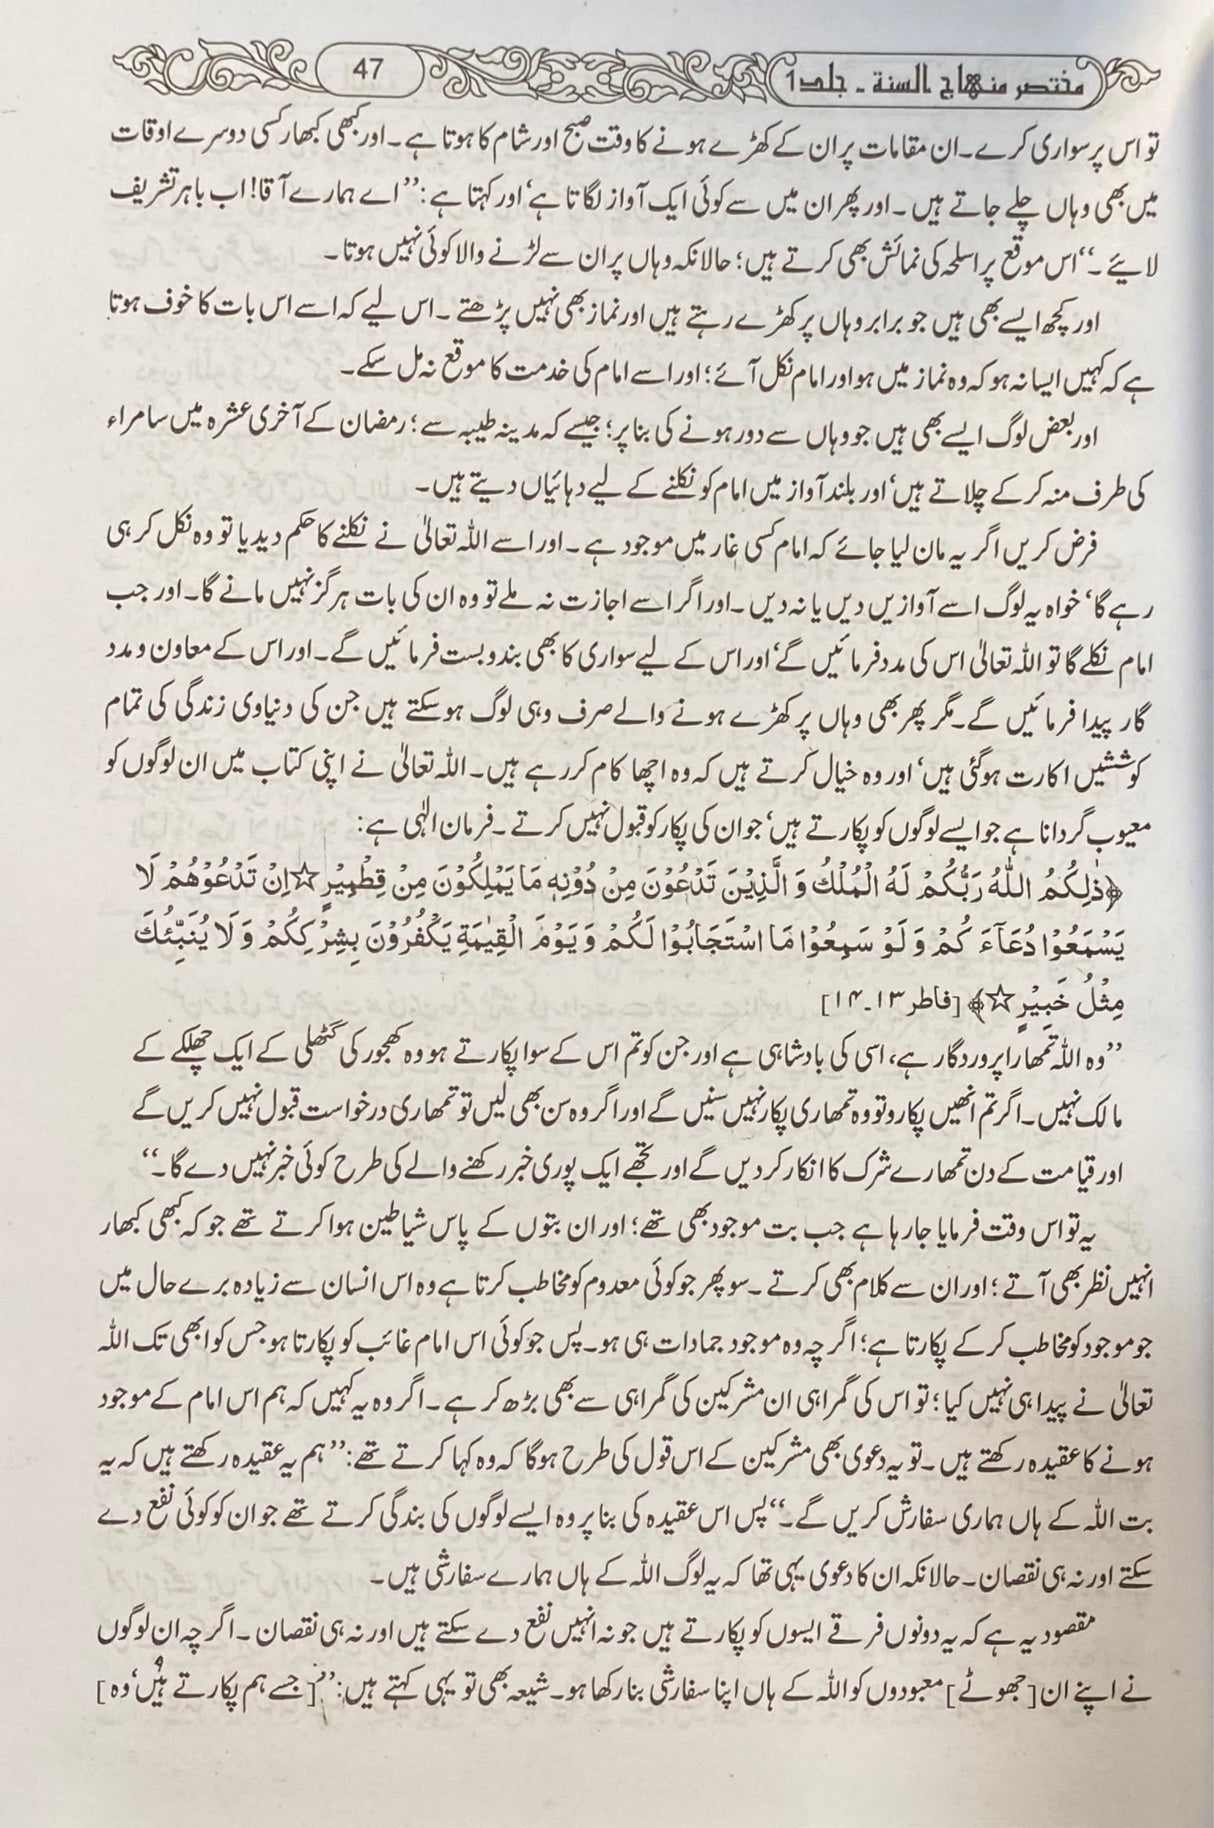 مختصر منهاج السنة ـ جلد 1
47
تو اس پر سواری کرے۔ ان مقامات پر ان کے کھڑے ہونے کا وقت صبح اور شام کا ہوتا ہے۔ اور کبھی کبھار کسی دوسرے اوقات
میں بھی وہاں چلے جاتے ہیں۔ اور پھر ان میں سے کوئی ایک آواز لگاتا ہے‘ اور کہتا ہے: ’’اے ہمارے آقا! اب باہر تشریف
لائیے۔‘‘ اس موقع پر اسلحہ کی نمائش بھی کرتے ہیں؛ حالانکہ وہاں پر ان سے لڑنے والا کوئی نہیں ہوتا۔
اور کچھ ایسے بھی ہیں جو برابر وہاں پر کھڑے رہتے ہیں اور نماز بھی نہیں پڑھتے۔ اس لیے کہ اسے اس بات کا خوف ہوتا
ہے کہ کہیں ایسا نہ ہو کہ وہ نماز میں ہو اور امام نکل آئے؛ اور اسے امام کی خدمت کا موقع نہ مل سکے۔
اور بعض لوگ ایسے بھی ہیں جو وہاں سے دور ہونے کی بنا پر؛ جیسے کہ مدینہ طیبہ سے؛ رمضان کے آخری عشرہ میں سامراء
کی طرف منہ کر کے چلاتے ہیں‘ اور بلند آواز میں امام کو نکلنے کے لیے دہائیاں دیتے ہیں۔
فرض کریں اگر یہ مان لیا جائے کہ امام کسی غار میں موجود ہے۔ اور اسے اللہ تعالیٰ نے نکلنے کا حکم دیدیا تو وہ نکل کر ہی
رہے گا‘ خواہ یہ لوگ اسے آوازیں دیں یا نہ دیں۔ اور اگر اسے اجازت نہ ملے تو وہ ان کی بات ہرگز نہیں مانے گا۔ اور جب
امام نکلے گا تو اللہ تعالیٰ اس کی مدد فرمائیں گے‘ اور اس کے لیے سواری کا بھی بندوبست فرمائیں گے۔ اور اس کے معاون و مدد
گار پیدا فرمائیں گے۔ مگر پھر بھی وہاں پر کھڑے ہونے والے صرف وہی لوگ ہو سکتے ہیں جن کی دنیاوی زندگی کی تمام
کوششیں اکارت ہو گئی ہیں‘ اور وہ خیال کرتے ہیں کہ وہ اچھا کام کر رہے ہیں۔ اللہ تعالیٰ نے اپنی کتاب میں ان لوگوں کو
معیوب گردانا ہے جو ایسے لوگوں کو پکارتے ہیں‘ جو ان کی پکار کو قبول نہیں کرتے۔ فرمان الٰہی ہے:
﴿ذٰلِكُمُ اللّٰهُ رَبُّكُمْ لَهُ الْمُلْكُ وَ الَّذِيْنَ تَدْعُوْنَ مِنْ دُوْنِهٖ مَا يَمْلِكُوْنَ مِنْ قِطْمِيْرٍ ☆ اِنْ تَدْعُوْهُمْ لَا
يَسْمَعُوْا دُعَآءَ كُمْ وَ لَوْ سَمِعُوْا مَا اسْتَجَابُوْا لَكُمْ وَ يَوْمَ الْقِيٰمَةِ يَكْفُرُوْنَ بِشِرْكِكُمْ وَ لَا يُنَبِّئُكَ
مِثْلُ خَبِيْرٍ ☆﴾ [فاطر ۱۳۔۱۴]
’’وہ اللہ تمھارا پروردگار ہے، اسی کی بادشاہی ہے اور جن کو تم اس کے سوا پکارتے ہو وہ کھجور کی گٹھلی کے ایک چھلکے کے
مالک نہیں۔ اگر تم انھیں پکارو تو وہ تمھاری پکار نہیں سنیں گے اور اگر وہ سن بھی لیں تو تمھاری درخواست قبول نہیں کریں گے
اور قیامت کے دن تمھارے شرک کا انکار کر دیں گے اور تجھے ایک پوری خبر رکھنے والے کی طرح کوئی خبر نہیں دے گا۔‘‘
یہ تو اس وقت فرمایا جا رہا ہے جب بت موجود بھی تھے؛ اور ان بتوں کے پاس شیاطین ہوا کرتے تھے جو کہ کبھی کبھار
انہیں نظر بھی آتے؛ اور ان سے کلام بھی کرتے۔ سو پھر جو کوئی معدوم کو مخاطب کرتا ہے وہ اس انسان سے زیادہ برے حال میں
جو موجود کو مخاطب کر کے پکارتا ہے؛ اگر چہ وہ موجود جمادات ہی ہو۔ پس جو کوئی اس امام غائب کو پکارتا ہو جس کو ابھی تک اللہ
تعالیٰ نے پیدا ہی نہیں کیا؛ تو اس کی گمراہی ان مشرکین کی گمراہی سے بھی بڑھ کر ہے۔ اگر وہ یہ کہیں کہ ہم اس امام کے موجود
ہونے کا عقیدہ رکھتے ہیں۔ تو یہ دعوی بھی مشرکین کے اس قول کی طرح ہوگا کہ وہ کہا کرتے تھے: ’’ہم یہ عقیدہ رکھتے ہیں کہ یہ
بت اللہ کے ہاں ہماری سفارش کریں گے۔‘‘ پس اس عقیدہ کی بنا پر وہ ایسے لوگوں کی بندگی کرتے تھے جو ان کو کوئی نفع دے
سکتے اور نہ ہی نقصان۔ حالانکہ ان کا دعوی یہی تھا کہ یہ لوگ اللہ کے ہاں ہمارے سفارشی ہیں۔
مقصود یہ ہے کہ یہ دونوں فرقے ایسوں کو پکارتے ہیں جو نہ انہیں نفع دے سکتے ہیں اور نہ ہی نقصان۔ اگر چہ ان لوگوں
نے اپنے ان [جھوٹے] معبودوں کو اللہ کے ہاں اپنا سفارشی بنا رکھا ہو۔ شیعہ بھی تو یہی کہتے ہیں: ’’[جسے ہم پکارتے ہیں‘ وہ]